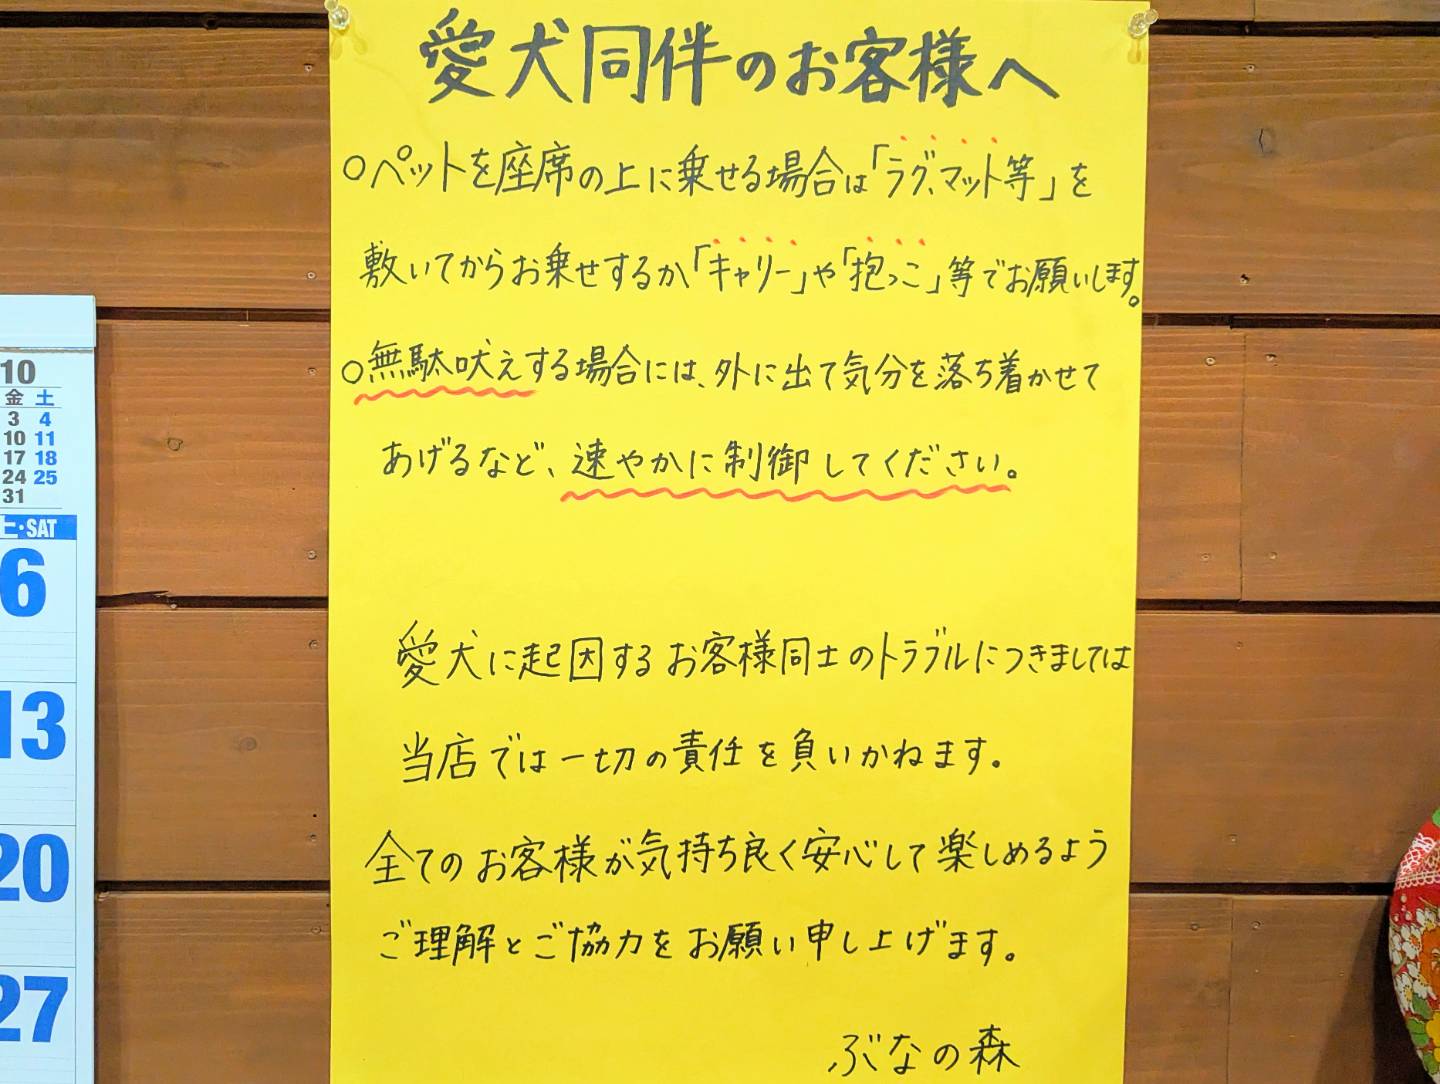 愛犬同伴のお客様へ
○ペットを座席の上に乗せる場合は「ラグ、マット等」を
敷いてからお乗せするか「キャリー」や「抱っこ」等でお願いします。
○無駄吠えする場合には、外に出て気分を落ち着かせて
あげるなど、速やかに制御してください。
愛犬に起因するお客様同士のトラブルにつきましては
当店では一切の責任を負いかねます。
全てのお客様が気持ち良く安心して楽しめるよう
ご理解とご協力をお願い申し上げます。
ぶなの森
10
金 土
3 4
10 11
17 18
24 25
31
土・SAT
6
13
20
27